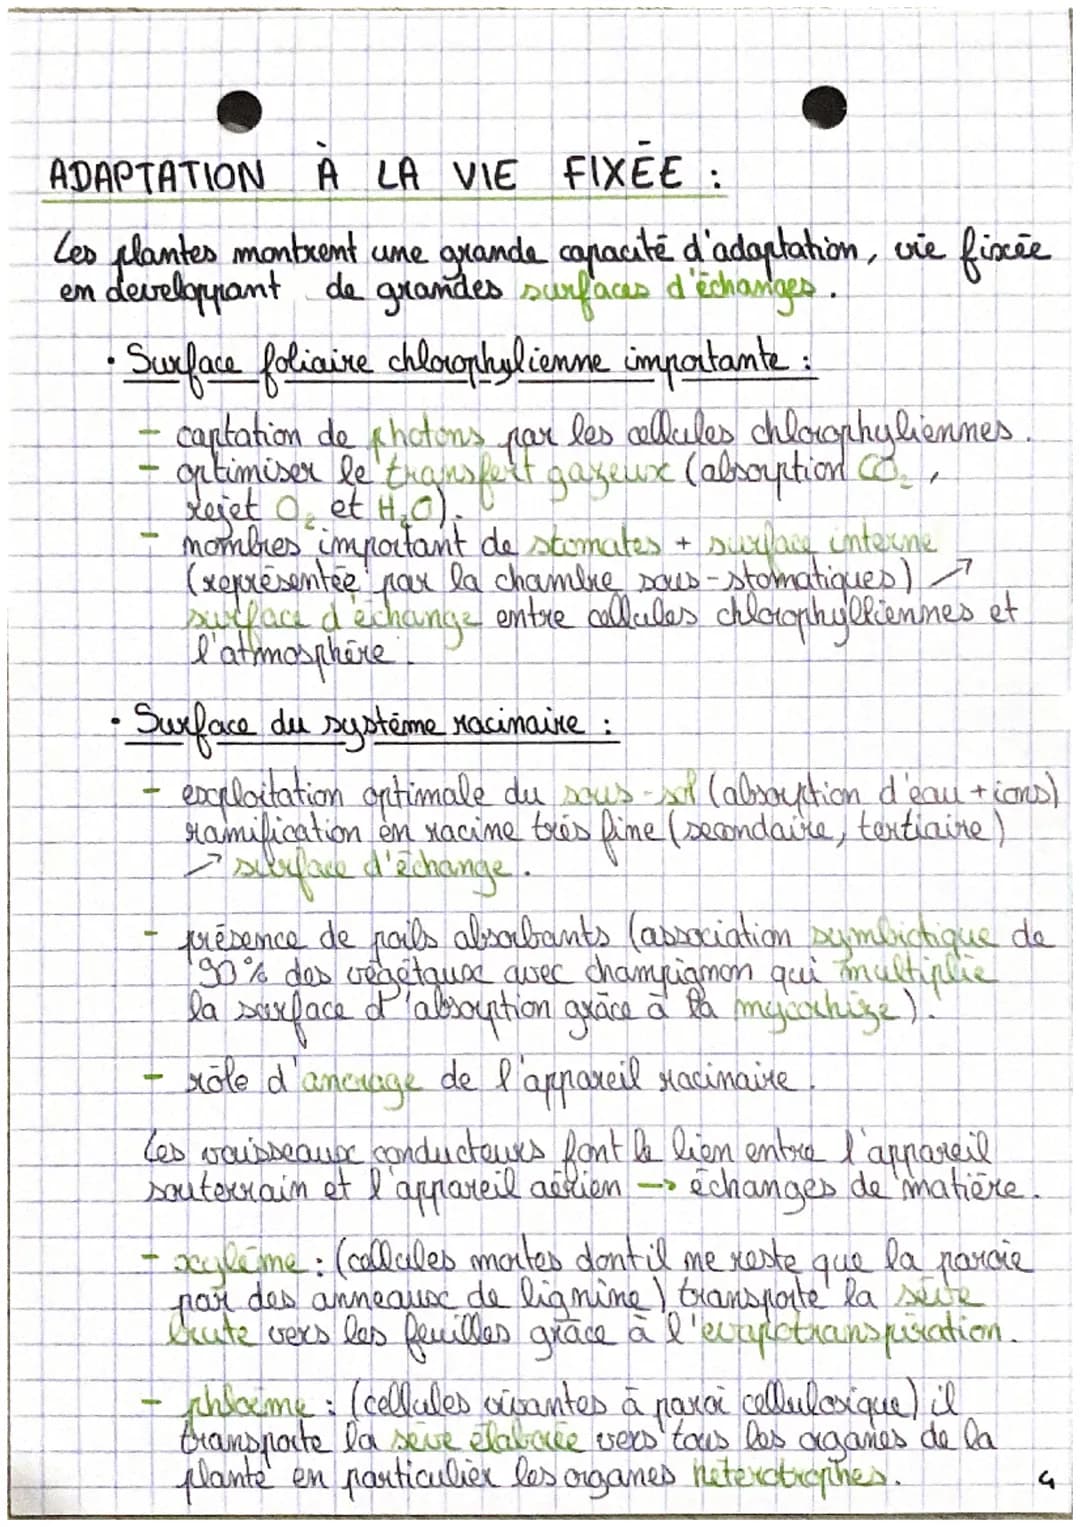 ADAPTATION À LA VIE FIXÉE :
Les plantes montrent une grande capacité d'adaptation, vie fixée
en developpant de grandes surfaces d'échanges.
• Surface foliaire chlorophylienne importante :
- captation de photons par les cellules chlorophyliennes.
- optimiser le transfert gazeux (absorption CO₂,
rejet O₂ et H₂O).
- nombres important de stomates + surface interne
(représentée par la chambre sous-stomatiques) ↗
surface d'échange entre cellules chlorophylliennes et
l'atmosphère.
• Surface du système racinaire :
- exploitation optimale du sous-sol (absorption d'eau + ions)
ramification en racine très fine (secondaire, tertiaire)
↗ surface d'échange.
- présence de poils absorbants (association symbiotique de
90% des végétaux avec champignon qui multiplie
la surface d'absorption grâce à la mycorhize).
- rôle d'ancrage de l'appareil racinaire.
Les vaisseaux conducteurs font le lien entre l'appareil
souterrain et l'appareil aérien → échanges de matière.
- xylème : (cellules mortes dont il ne reste que la paroie
par des anneaux de lignine) transporte la sève
brute vers les feuilles grâce à l'evapotranspiration.
- phloème : (cellules vivantes à paroi cellulosique) il
transporte la sève élaborée vers tous les organes de la
plante en particulier les organes hétérotrophes.
4